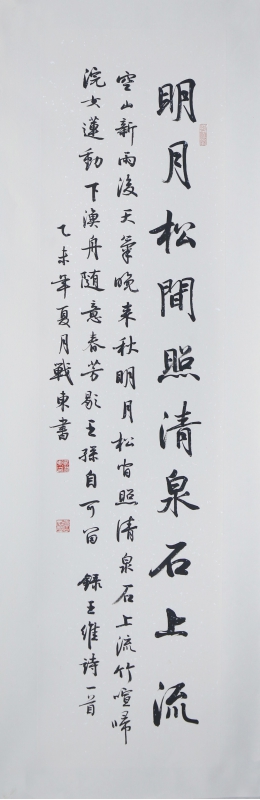 明月松間照清泉石上流
空山新雨後天氣晚来秋明月松间照清泉石上流竹喧歸
浣女蓮動下漁舟随意春芳歇王孫自可留 録王維詩一首
乙未年夏月戰東書